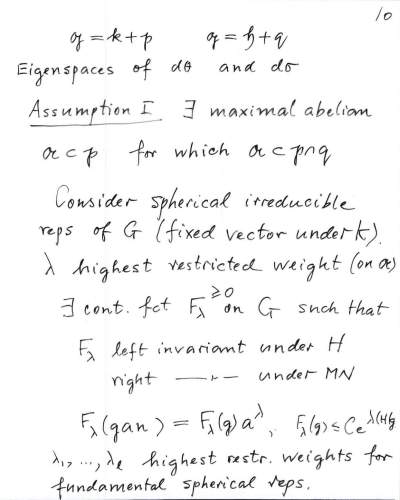 10
𝔤 = k + p    𝔤 = 𝔥 + q
Eigenspaces of dθ and dσ
Assumption I ∃ maximal abelian
𝔞 ⊂ p for which 𝔞 ⊂ p∩q
Consider spherical irreducible
reps of G (fixed vector under K).
λ highest restricted weight (on 𝔞)
∃ cont. fct F_λ ≥0 on G such that
F_λ left invariant under H
right —〃— under MN
F_λ(gan) = F_λ(g)a^λ, F_λ(g) ≤ Ce^λ(H(g
λ₁, ..., λ_ℓ highest restr. weights for
fundamental spherical reps.